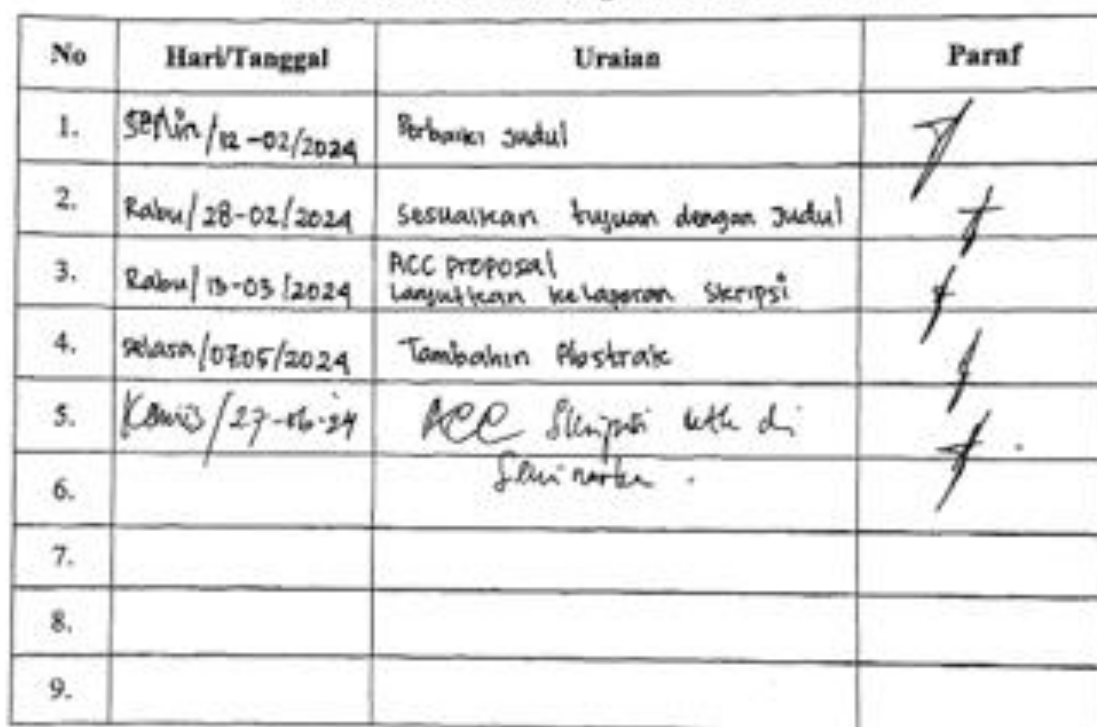 No Hari/Tanggal Uraian Paraf
1. Senin/12-02/2024 Perbaiki Judul
2. Rabu/28-02/2024 Sesuaikan tujuan dengan Judul
3. Rabu/13-03/2024 ACC proposal
Lanjutkan kelaporan Skripsi
4. selasa/07.05/2024 Tambahin Abstrak
5. Kamis/27-06-24 ACC Skripsi utk di
Seminarkan.
6.
7.
8.
9.